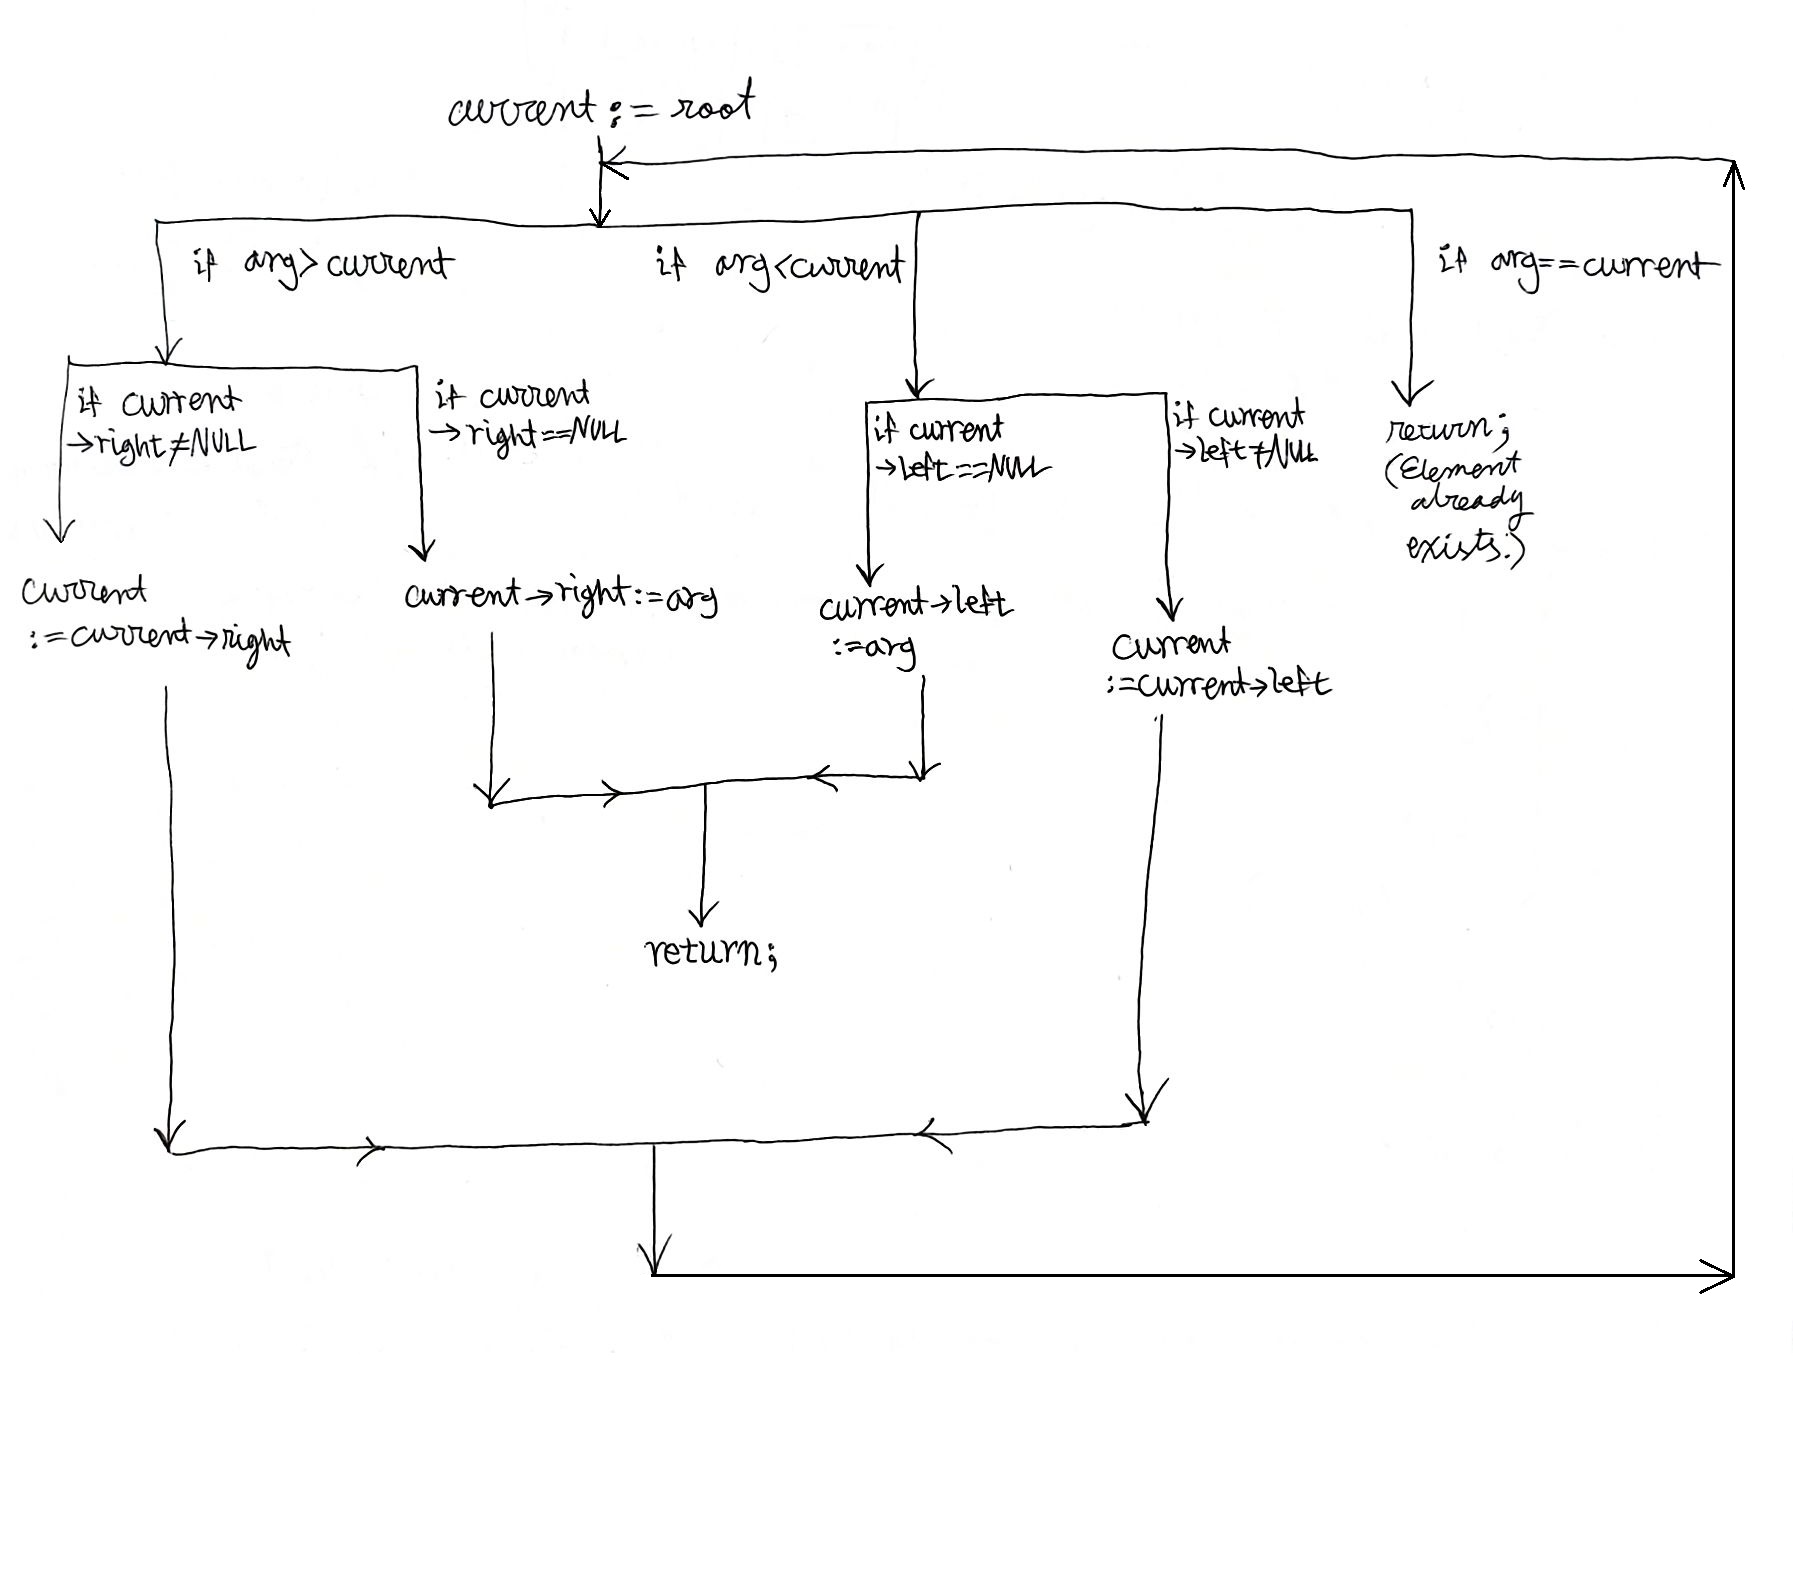 current := root
if arg>current
if arg<current
if arg==current
if current
→right≠NULL
if current
→right==NULL
if current
→left==NULL
if current
→left≠NULL
return;
(Element
already
exists.)
current
:=current→right
current→right:=arg
current→left
:=arg
current
:=current→left
return;